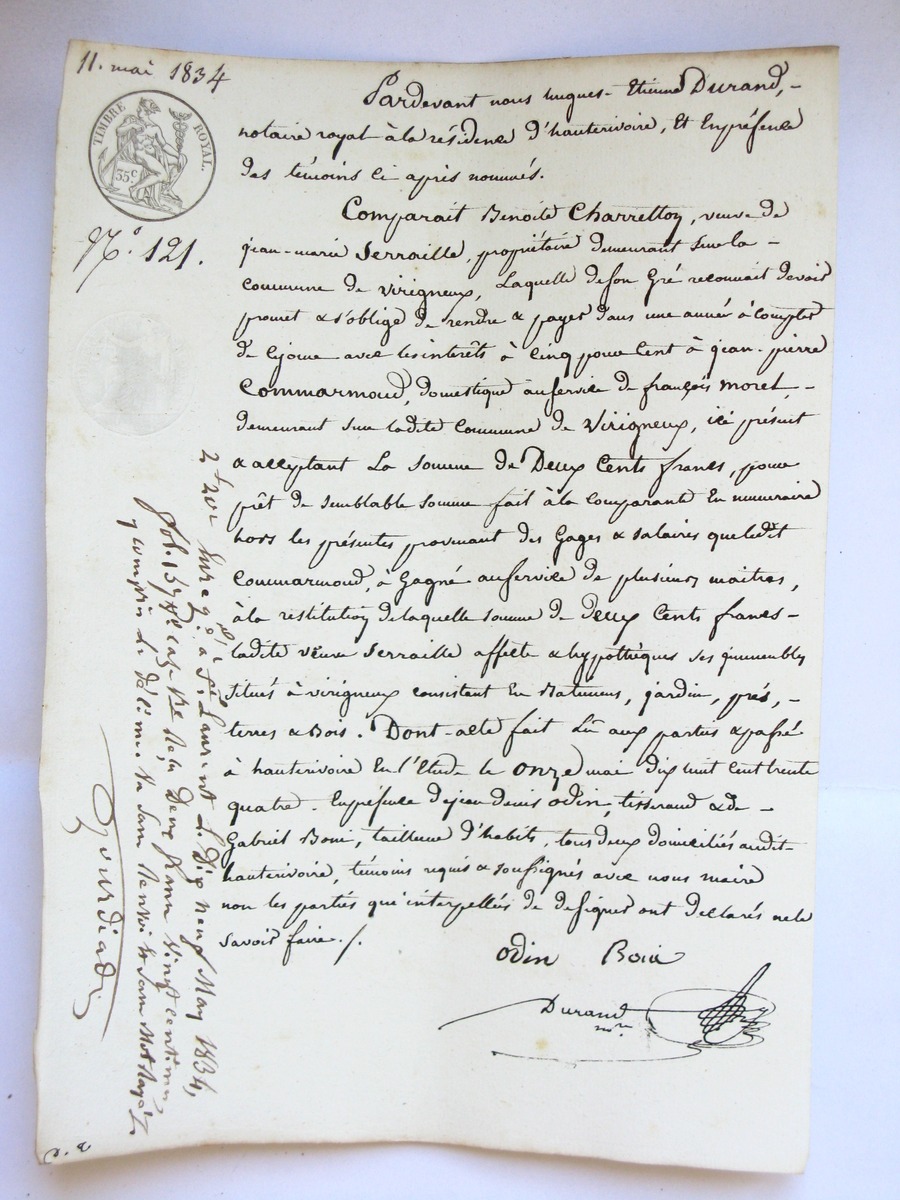 11. mai 1834
TIMBRE ROYAL.
35c
N.o 121.
Pardevant nous hugues-Etienne Durand,-
notaire royal à la résidence d'hauterivoire, Et En présence
des témoins ci après nommés.
Comparait Benoite Charretton, veuve de
jean-marie Serraille, propriétaire demeurant sur la -
commune de virigneux, Laquelle de son Gré reconnait devoir
promet & s'oblige de rendre & payer dans une année à compter
de ce jour avec les intérêts à cinq pour Cent à jean-pierre
Commarmond, domestique au service de françois moret -
demeurant sur ladite Commune de Virigneux, ici présent
& acceptant La somme de Deux Cents francs, pour
prêt de semblable somme fait à la comparante En numeraire
hors les présentes provenant des Gages & salaires que ledit
Commarmond, à Gagné au service de plusieurs maitres,
à la restitution de laquelle somme de deux Cents francs -
ladite veuve Serraille affecte & hypothèques ses immeubles
situés à virigneux consistant En Batimens, jardin, prés, -
terres & Bois. Dont-acte fait Lu aux parties & passé
à hauterivoire En l'Etude le onze mai dix huit cent trente
quatre. En présence de jean denis odin, tisserand & de -
Gabriel Boni, tailleur d'habits, tous deux domiciliés audit-
hauterivoire, témoins requis & soussignés avec nous maire
non les parties qui interpellés de de signer ont declarés ne le
savoir faire./.
odin
Durand
nore
2f 20c
Enreg.é à St. Laurent Le Dix neuf May 1834,
fol. 157 Vo case 1re Reçu Deux francs vingt centimes
y compris le décime